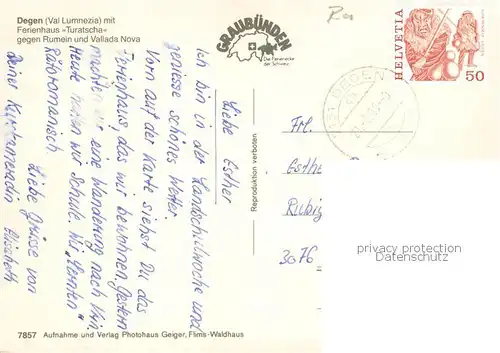 Degen (Val Lumnezia) mit
Ferienhaus »Turatscha«
gegen Rumein und Vallada Nova
GRAUBÜNDEN
Die Ferienecke
der Schweiz
HELVETIA
50
DEGEN
Liebe Esther
Ich bin in der Landschulwoche und
geniesse schönes Wetter.
Vorn auf der Karte siehst Du das
Ferienhaus, das wir bewohnen. Gestern
machten wir eine Wanderung nach Vrin.
Heute hatten wir Schule. Wir "lernten"
Rätoromanisch.
Liebe Grüsse von
Deiner Kurskameradin Elisabeth
Reproduktion verboten
Frl.
Esthe
Rubig
3076
privacy protection
Datenschutz
7857 Aufnahme und Verlag Photohaus Geiger, Flims-Waldhaus